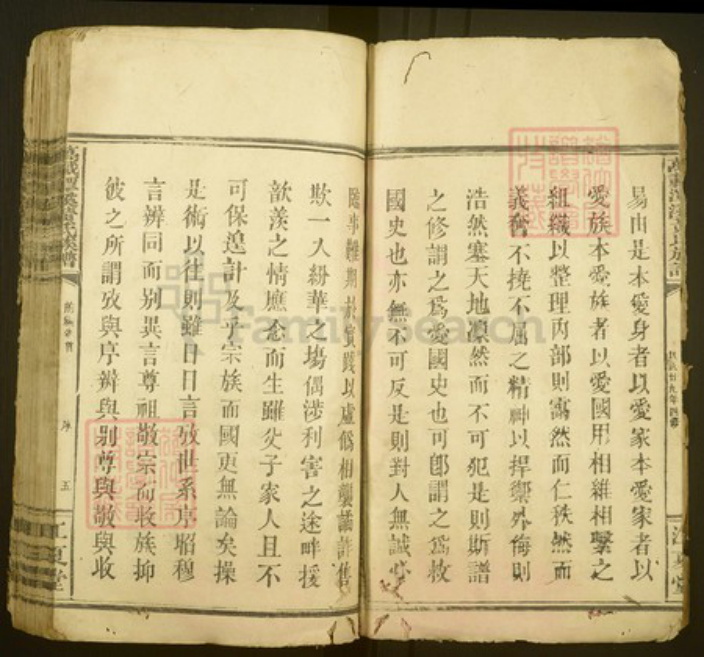 易由是本愛身者以愛家本愛家者以
愛族本愛族者以愛國用相維相繫之
組織以整理內部則藹然而仁秩然而
義奮不撓不屈之精神以捍禦外侮則
浩然塞天地凜然而不可犯是則斯譜
之修謂之為愛國史也可卽謂之為救
國史也亦無不可反是則對人無誠
事難期於實踐以虛偽相襲譎詐售
欺一入紛華之場偶涉利害之途畔援
歆羨之情應念而生雖父子家人且不
可保遑計及乎宗族而國更無論矣操
是術以往則雖日日言攷世系序昭穆
言辨同而別異言尊祖敬宗而收族抑
彼之所謂攷與序辨與別尊與敬與收
氏族譜
序
五
江夏堂
江夏堂
FamilySearch